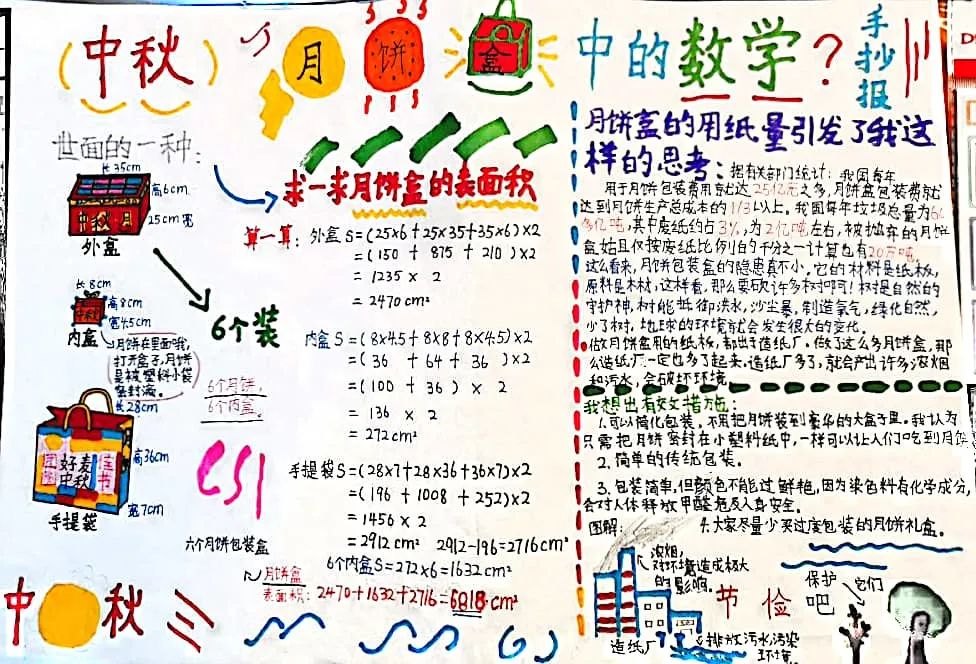 中秋 月 饼 盒 中的数学？ 手抄报
世面的一种：
长35cm
高6cm
25cm宽
中秋 月
外盒
长8cm
高8cm
宽4.5cm
内盒
月饼在里面哦，
打开盒子，月饼
是被塑料小袋
密封滴。
6个装
6个月饼，
6个内盒。
长28cm
高36cm
宽7cm
好麦
中秋
手提袋
求一求月饼盒的表面积
算一算：外盒S=(25×6+25×35+35×6)×2
=(150 + 875 + 210)×2
=1235 × 2
=2470cm²
内盒S=(8×4.5+8×8+8×4.5)×2
=(36 + 64 + 36)×2
=(100 + 36) × 2
=136 × 2
=272cm²
手提袋S=(28×7+28×36+36×7)×2
=(196 + 1008 + 252)×2
=1456 × 2
=2912cm² 2912-196=2716cm²
六个月饼包装盒
6个内盒S=272×6=1632cm²
月饼盒
表面积：2470+1632+2716=6818cm²
中 秋
月饼盒的用纸量引发了我这
样的思考：据有关部门统计：我国每年
用于月饼包装费用就达25亿元之多，月饼盒包装费就
达到月饼生产总成本的1/3以上。我国每年垃圾总量为60
多亿吨，其中废纸约占3%，为2亿吨左右，被扔弃的月饼
盒始且仅按废纸比例的千分之一计算也有20万吨。
这么看来，月饼包装盒的隐患真不小。它的材料是纸板，
原料是木材，这样看，那么要砍许多树啊！树是自然的
守护神，树能抵御洪水，沙尘暴，制造氧气，绿化自然，
少了树，地球的环境就会发生很大的变化。
做月饼盒用的纸板，都出于造纸厂。做了这么多月饼盒，那
么造纸厂一定也多了起来，造纸厂多了，就会产出许多浓烟
和污水，会破坏环境
我想出有效措施：
1.可以简化包装，不用把月饼装到豪华的大盒子里。我认为
只需把月饼密封在小塑料纸中，一样可以让人们吃到月饼
2.简单的传统包装。
3.包装简单，但颜色不能过鲜艳，因为染色料有化学成分，
会对人体释放甲醛危及人身安全。
图解： 4.大家尽量少买过度包装的月饼礼盒。
浓烟，
对环境造成极大
的影响。
造纸厂
排放污水污染
环境
节 俭
保护 它们
吧